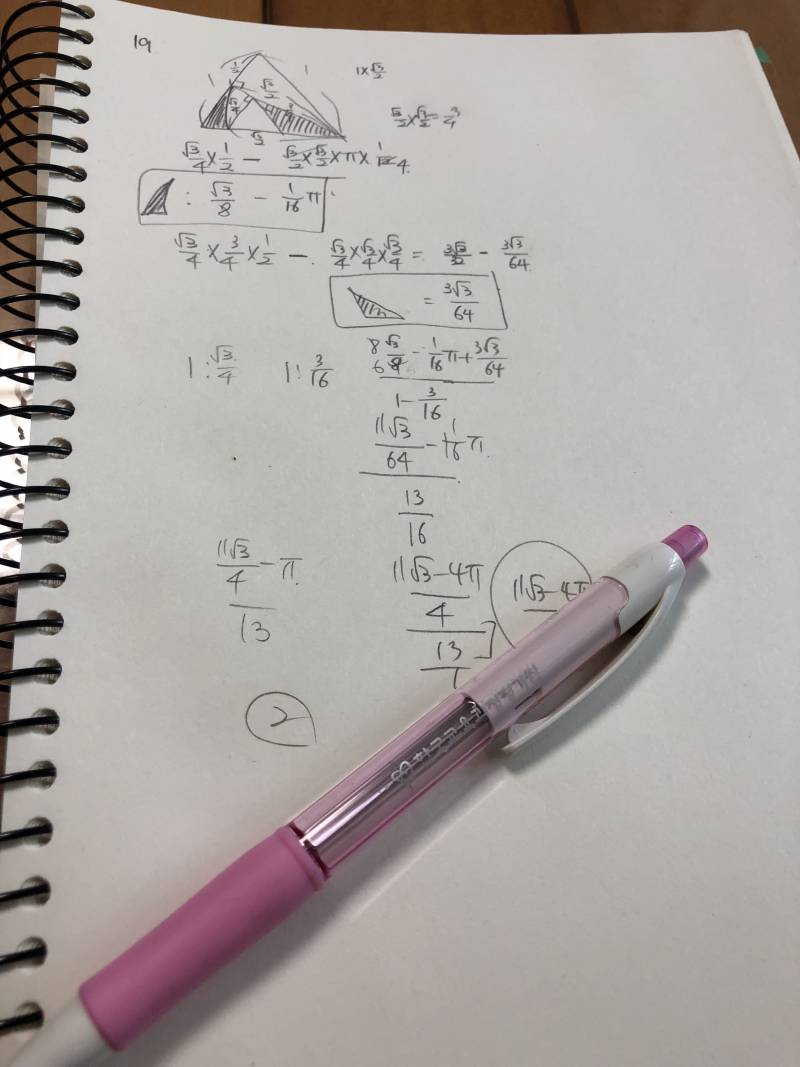 19
1 1/2 √3/2 1 1×√3/2
√3/2 × √3/2 = 3/4
√3/4 × 1/2 - √3/2 × √3/2 × π × 1/12 4
: √3/8 - 1/16 π
√3/4 × 3/4 × 1/2 - √3/4 × √3/4 × √3/4 = 3√3/32 - 3√3/64
= 3√3/64
1 : √3/4 1 : 3/16 8√3/64 - 1/16 π + 3√3/64
1 - 3/16
11√3/64 - 1/16 π
13/16
11√3/4 - π 11√3 - 4π 11√3 - 4π
13 4
13
1
2